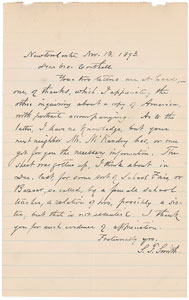 Newton Centre, Nov. 13, 1893
Dear Mr.
Your two letters are at hand,
one of thanks, which I appreciate, the
other inquiring about a copy of America,
with portrait accompanying. As to the
latter, I have no knowledge, but your
next neighbor Mr. has one, or can
get for you the necessary information. The
sheet was gotten up, I think about in
Dec. last, for some sort of School Fair, or
Bazaar, so called, by a female school
teacher, a relation of his, possibly a sis-
ter, but that is not essential. I thank
you for such evidences of appreciation.
Fraternally yrs,
S. F. Smith.